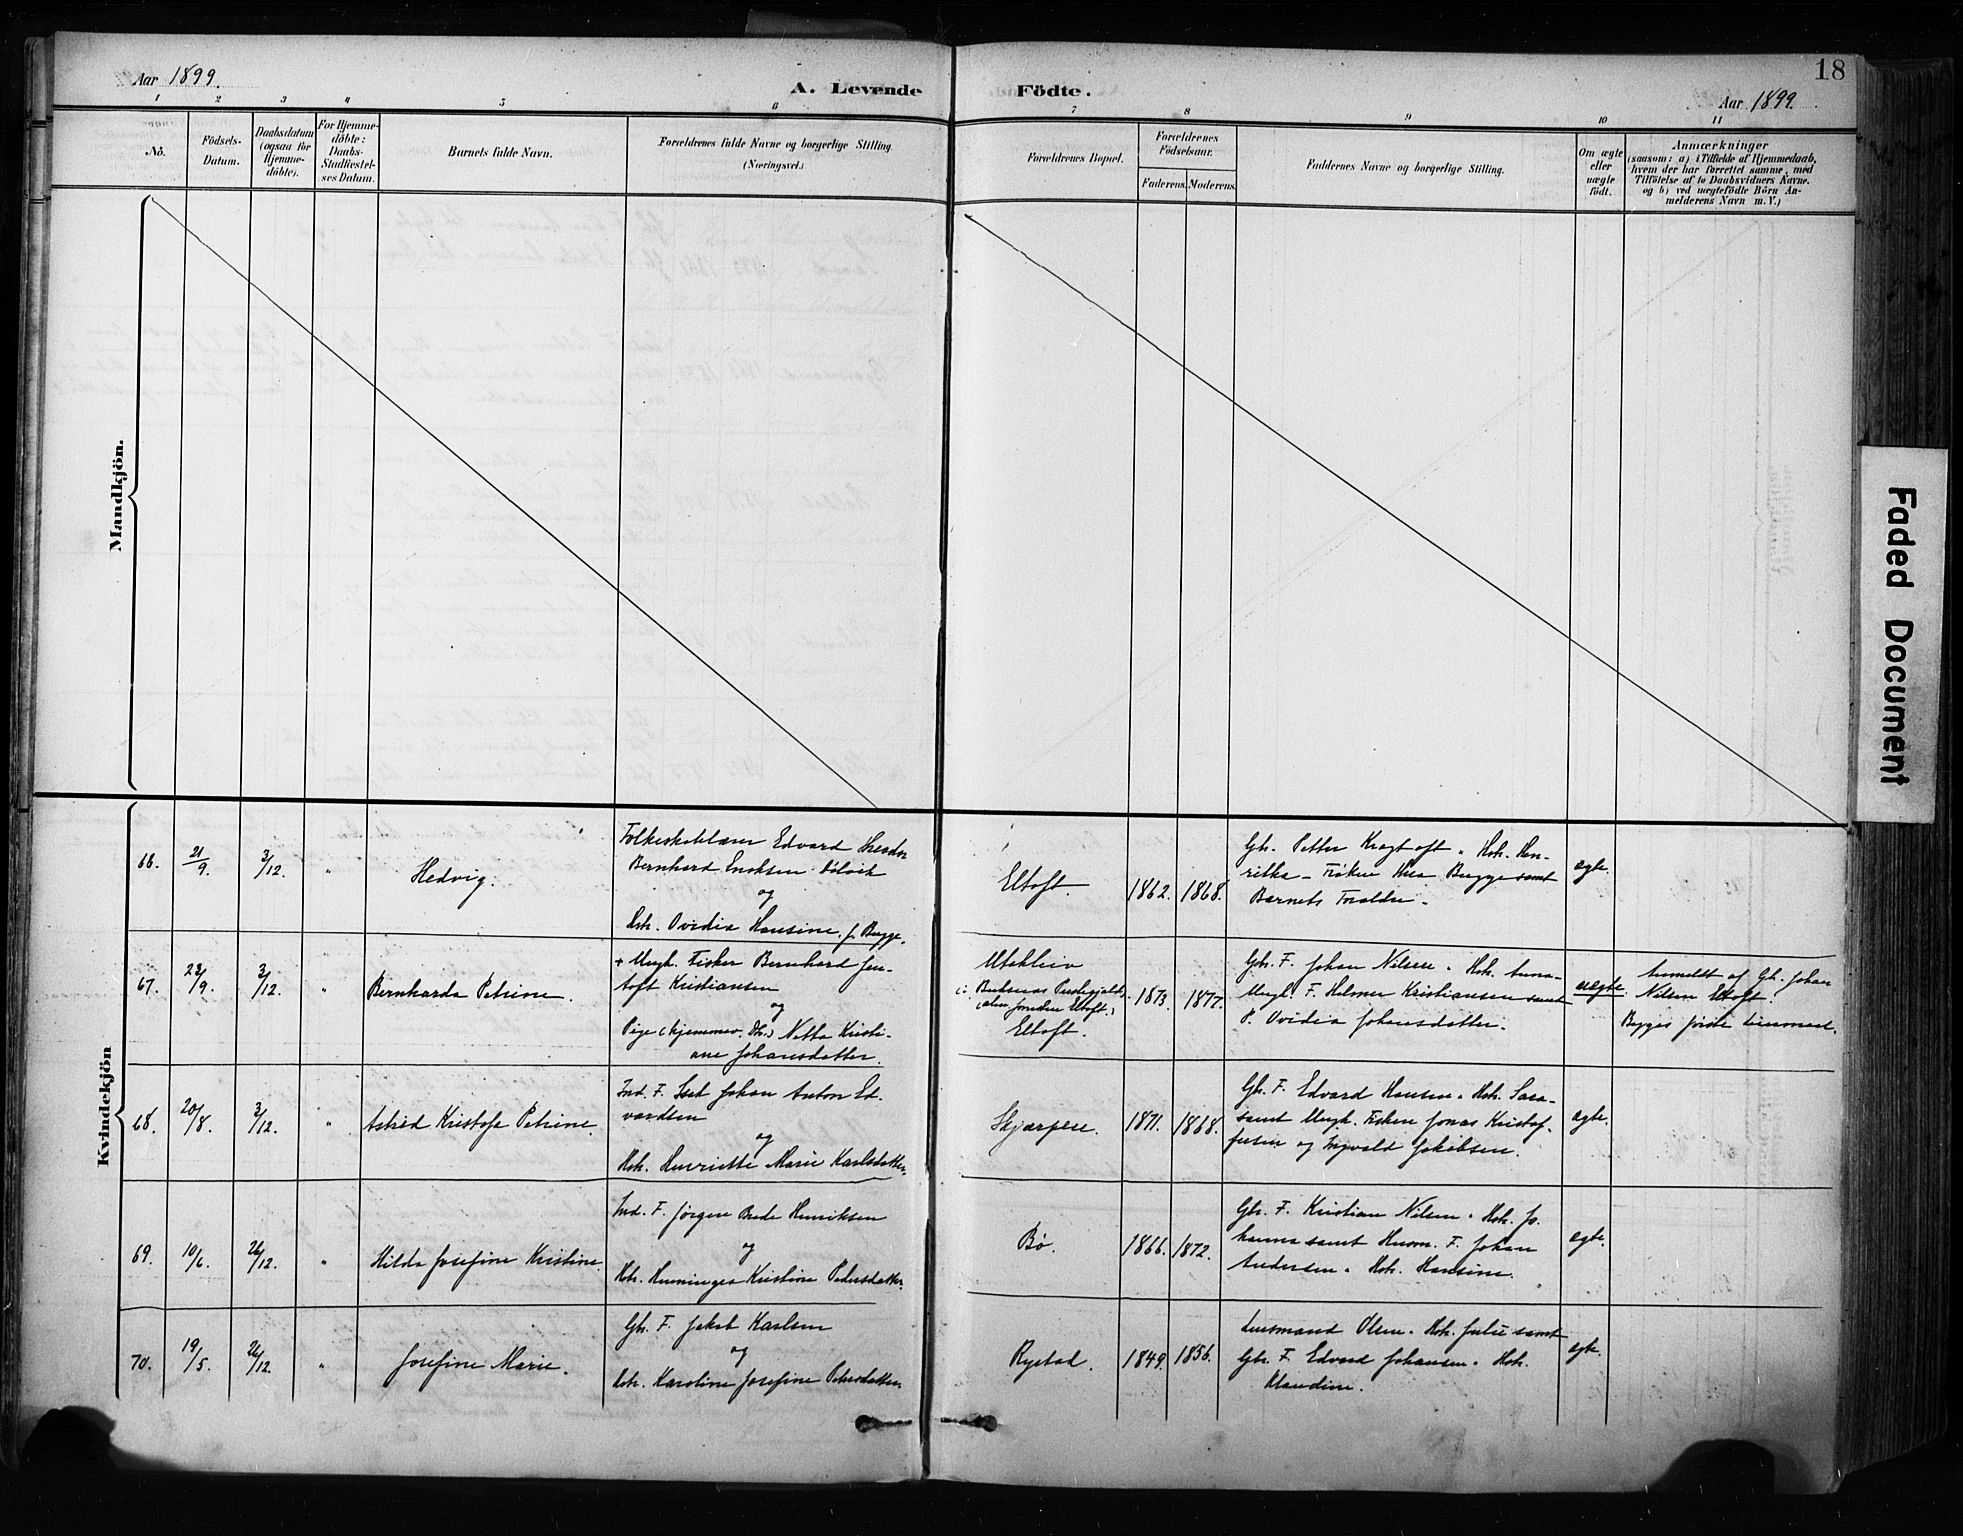 18
Aar 1899.
A. Levende Födte.
Aar 1899.
1 2 3 4 5 6 7 8 9 10 11
No.
Födsels-
Datum.
Daabsdatum
(ogsaa for
Hjemme-
döbte).
For Hjemme-
döbte:
Daabs-
Stadfæstel-
ses Datum.
Barnets fulde Navn.
Forældrenes fulde Navne og borgerlige Stilling.
(Næringsvei.)
Forældrenes Bopæl.
Forældrenes
Födselsaar.
Faderens. Moderens.
Faddernes Navne og borgerlige Stilling.
Om ægte
eller
uægte
födt.
Anmærkninger
(saasom: a) i Tilfælde af Hjemmedaab,
hvem der har forrettet samme, med
Tilföielse af to Daabsvidners Navne.
og b) ved uægtefödte Börn An-
melderens Navn m. V.)
Mandkjön.
Kvindekjön
66. 21/9 3/12. " Hedvig.
Folkeskolelærer Edvard
Bernhard Enoksen
og
Hstr. Ovidia Hansine, f. Bugge.
Eltoft. 1862. 1868.
Gbr. Petter Kragtoft. Hstr. Hen-
rikka - Frøken Bugge samt
Barnets Forældre.
ægte.
67. 23/9. 3/12. " Bernharda Petrine.
+ Ungk. Fisker Bernhard Jen-
toft Kristiansen
og
Pige (hjemmev. Dtr.) Netta Kristi-
ane Johansdatter.
Utakleiv
Buksnæs Præstegjæld,
Eltoft.
1873. 1877.
Gbr. F. Johan Nilsen. Hstr. Anna -
Ungk. F. Helmer Kristiansen samt
P. Ovidia Johansdatter.
uægte.
Anmeldt af Gbr. Johan
Nilsen Eltoft.
Begges første Leiermaal.
68. 20/8. 3/12. " Astrid Kristofa Petrine.
Ind. F. Johan Anton Ed-
vardsen
og
Hstr. Henriette Marie Karlsdatter.
Skjærpese. 1871. 1868.
Gbr. F. Edvard Hansen. Hstr. Sara -
samt Ungk. Fiskere Jonas Kristof-
fersen og Ingvald Jakobsen.
ægte.
69. 10/6. 26/12. " Hilda Josefine Kristine.
Ind. F. Jørgen Henriksen
og
Hstr. Henninges Kristine Pedersdatter.
Bø. 1866. 1872.
Gbr. F. Kristian Nilsen. Hstr. Jo-
hanna samt Husm. F. Johan
Andersen. Hstr. Hansine.
ægte.
70. 19/5. 26/12. " Josefine Marie.
Gbr. F. Jakob Karlsen
og
Hstr. Karoline Josefine Petersdatter.
Rystad. 1849. 1856.
Lensmand Olsen. Hstr. Julie samt
Gbr. F. Edvard Johansen. Hstr.
Klaudine.
ægte.
Faded Document